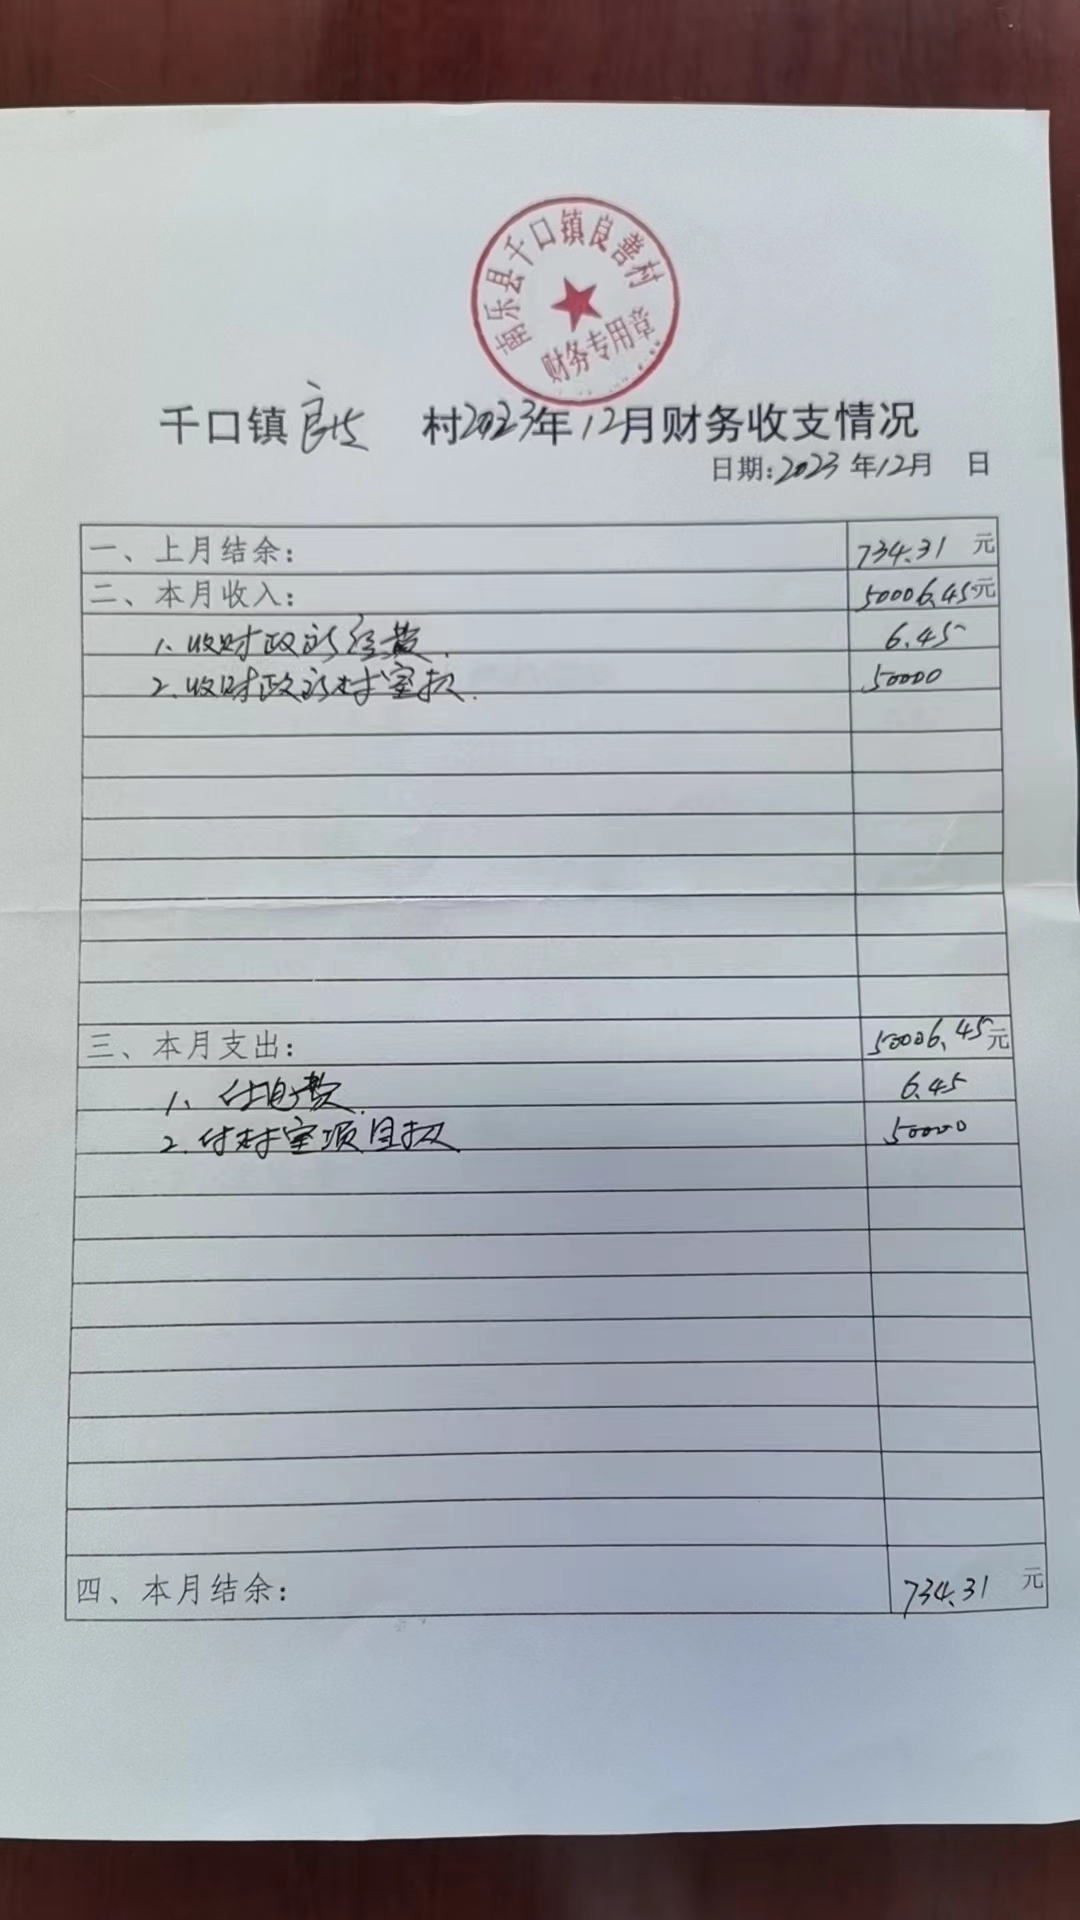 南乐县千口镇良善村
财务专用章
千口镇 良善 村2023年12月财务收支情况
日期:2023年12月 日
一、上月结余: 734.31 元
二、本月收入: 50006.45元
1. 收财政
经费. 6.45
2. 收财政
村室款. 50000
三、本月支出: 50006.45元
1、付电费. 6.45
2. 付村室项目款 50000
四、本月结余: 734.31 元